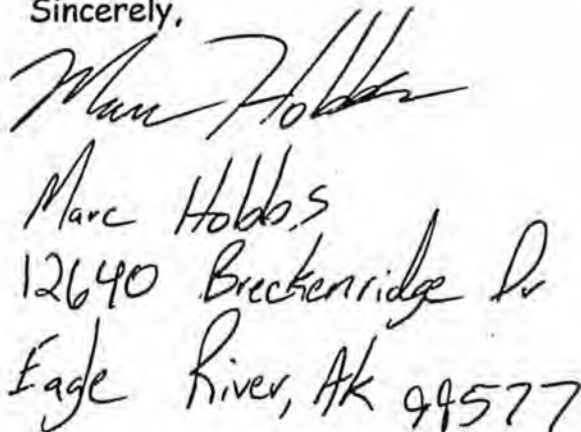 Sincerely,
Marc Hobbs
Marc Hobbs
12640 Breckenridge Dr
Eagle River, Ak 99577